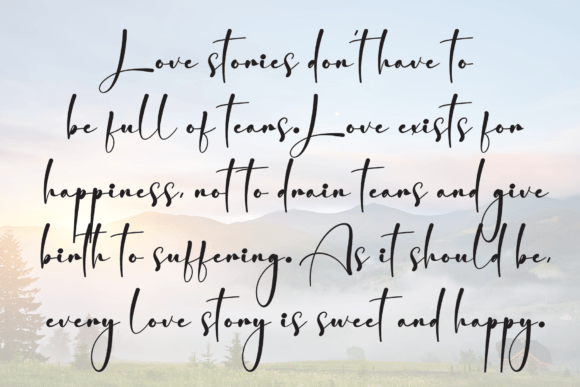 Love stories don't have to
be full of tears. Love exists for
happiness, not to drain tears and give
birth to suffering. As it should be,
every love story is sweet and happy.